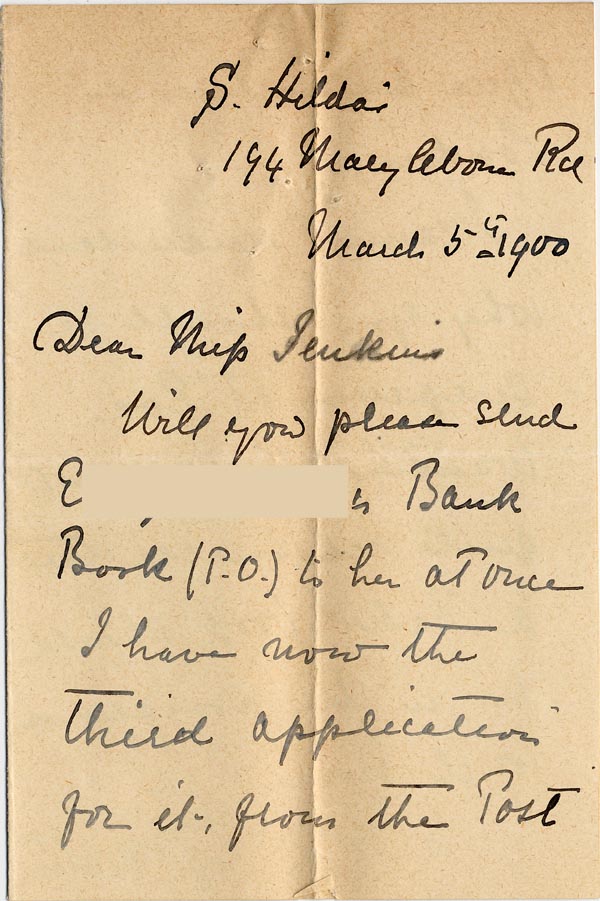 S. Hilda's
194 Marylebone Rd
March 5th 1900
Dear Miss Jenkins
Will you please send
E 's Bank
Book (P.O.) to her at once
I have now the
third application
for it, from the Post